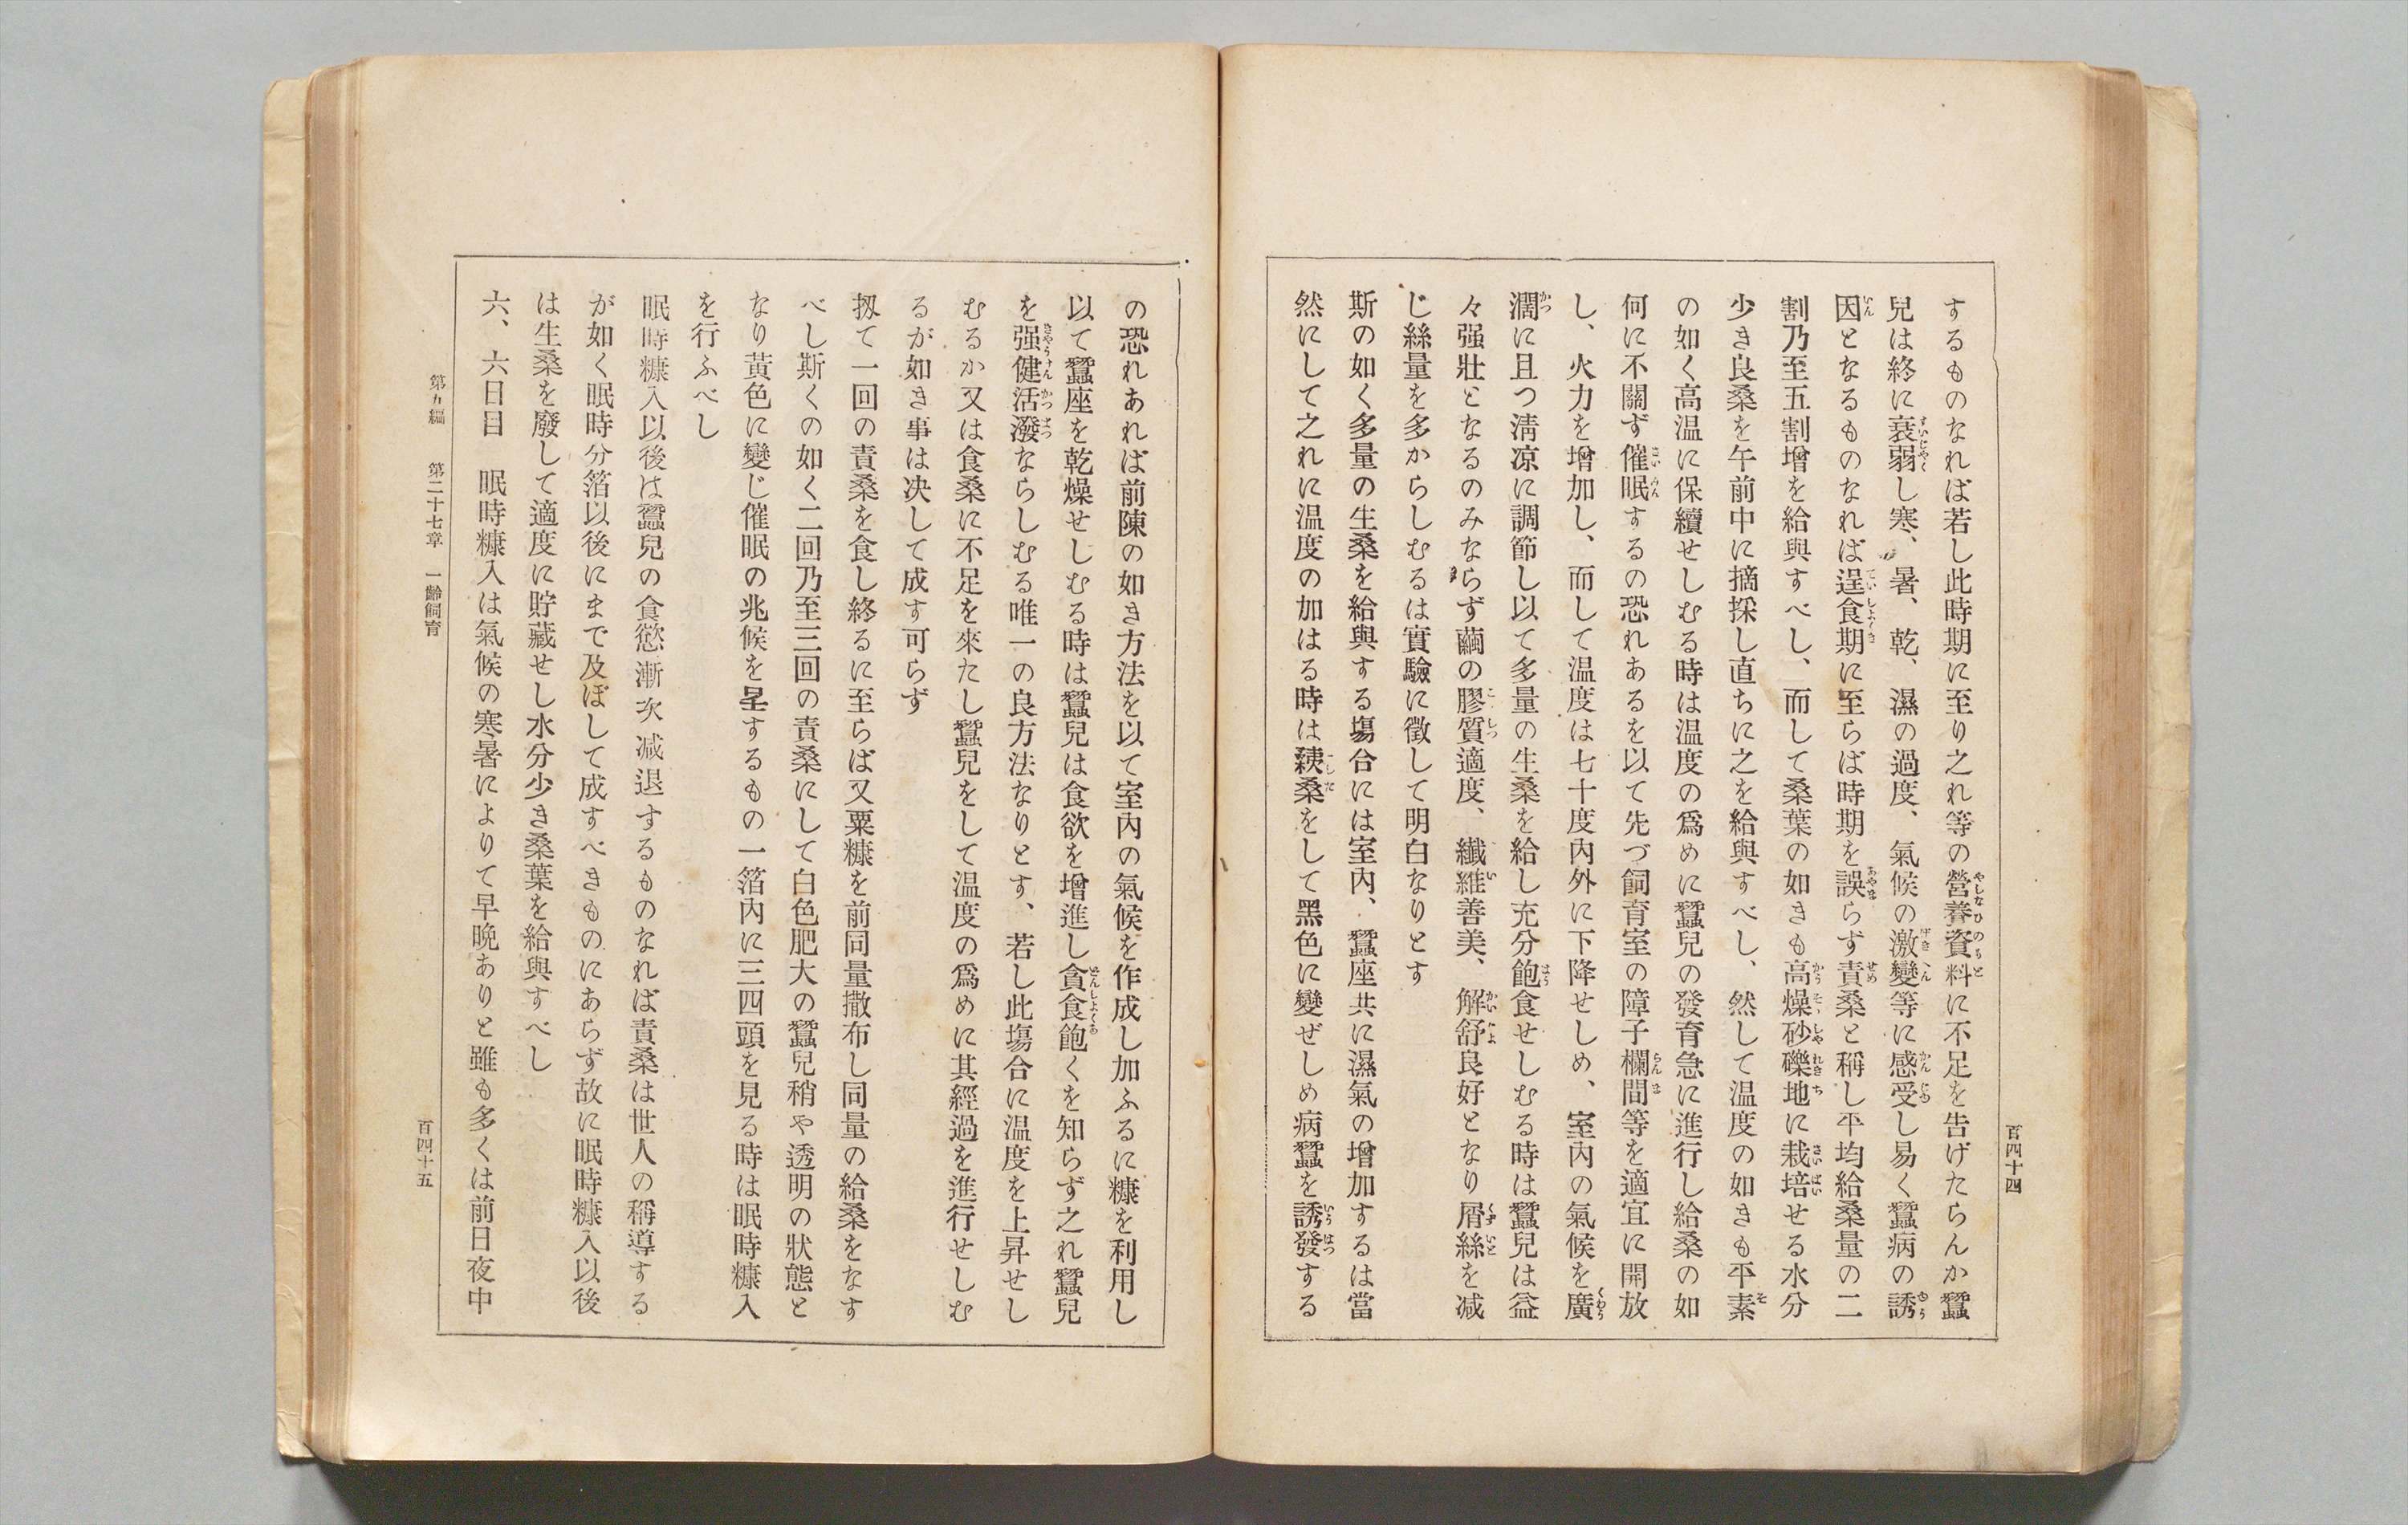 百四十四
するものなれば若し此時期に至り之れ等の營養資料に不足を告げたらんか蠶
兒は終に衰弱し寒、暑、乾、濕の過度、氣候の激變等に感受し易く蠶病の誘
因となるものなれば逞食期に至らば時期を誤らず責桑と稱し平均給桑量の二
割乃至五割增を給與すべし、而して桑葉の如きも高燥砂礫地に栽培せる水分
少き良桑を午前中に摘採し直ちに之を給與すべし、然して温度の如きも平素
の如く高温に保續せしむる時は温度の爲めに蠶兒の發育急に進行し給桑の如
何に不關ず催眠するの恐れあるを以て先づ飼育室の障子欄間等を適宜に開放
し、火力を增加し、而して温度は七十度內外に下降せしめ、室內の氣候を廣
濶に且つ淸凉に調節し以て多量の生桑を給し充分飽食せしむる時は蠶兒は益
々强壯となるのみならず繭の膠質適度、纖維善美、解舒良好となり屑絲を减
じ絲量を多からしむるは實驗に徵して明白なりとす
斯の如く多量の生桑を給與する塲合には室內、蠶座共に濕氣の增加するは當
然にして之れに温度の加はる時は桑をして黑色に變ぜしめ病蠶を誘發する
の恐れあれば前陳の如き方法を以て室內の氣候を作成し加ふるに糠を利用し
以て蠶座を乾燥せしむる時は蠶兒は食欲を增進し貪食飽くを知らず之れ蠶兒
を强健活潑ならしむる唯一の良方法なりとす、若し此塲合に温度を上昇せし
むるか又は食桑に不足を來たし蠶兒をして温度の爲めに其經過を進行せしむ
るが如き事は决して成す可らず
扨て一回の責桑を食し終るに至らば又粟糠を前同量撒布し同量の給桑をなす
べし斯くの如く二回乃至三回の責桑にして白色肥大の蠶兒稍や透明の狀態と
なり黃色に變じ催眠の兆候を呈するもの一箔內に三四頭を見る時は眠時糠入
を行ふべし
眠時糠入以後は蠶兒の食慾漸次减退するものなれば責桑は世人の稱導する
が如く眠時分箔以後にまで及ぼして成すべきものにあらず故に眠時糠入以後
は生桑を廢して適度に貯藏せし水分少き桑葉を給與すべし
六、六日目　眠時糠入は氣候の寒暑によりて早晩ありと雖も多くは前日夜中
第九編　第二十七章　一齡飼育
百四十五